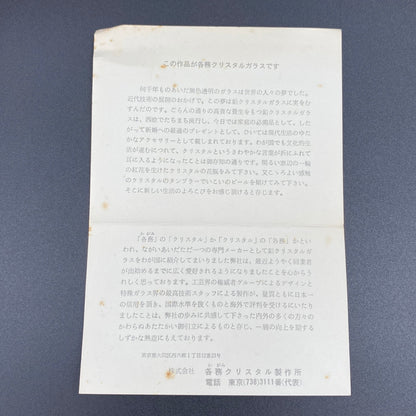 この作品が各務クリスタルガラスです
何千年ものあいだ無色透明のガラスは世界の人々の夢でした。
近代技術の展開のおかげで、この夢は鉛クリスタルガラスに実をむ
すんだのです。ごらんの通りの高貴な質生をもつ鉛クリスタルガ
ラスは、四欧でたちまち流行し、今日では家庭の必需品として、した
がって新婚への最適のプレゼントとして、ひいては現代生活のゆた
かなアクセサリーとして親しまれております。わが国でも文化的生
活が進むにつれて、クリスタルというさわやかな言葉が折にふれて
耳に入るようになったことは御存知の通りです。明るい窓辺の一輪
の紅花を生けたクリスタルの花瓶をみて下さい。又こっろよい感触
のクリスタルのタンブラーでいこいのビールを傾けてみて下さい。
そこに新しい生活のよろこびをお感じ頂けると存じます。
かがみ
「各務」の「クリスタル」か「クリスタル」の「各務」かとい
われ、ながいあいだただ一つの専門メーカーとして鉛クリスタルガ
ラスをわが国に紹介してまいりました弊社は、最近ようやく同業者
が出始めるまでに広く愛好されるようになりましたことを心からう
れしく思っております。工芸界の権威者グループによるデザインと
特殊ガラス界の最高技術スタッフによる製作が、量質ともに日本一
の信用を頂き、国際水準を抜くものと海外で評判を受けるにいたり
ましたことは、弊社の歩みに共感して下さった内外の多くの方々の
かわらぬあたたかい御引立によるものと存じ、一層の向上を期する
しずかな熱意にもえております。
東京都大田区西六郷1丁目12番23号
かがみ
株式会社 各務クリスタル製作所
電話 東京(738)3111番(代表)